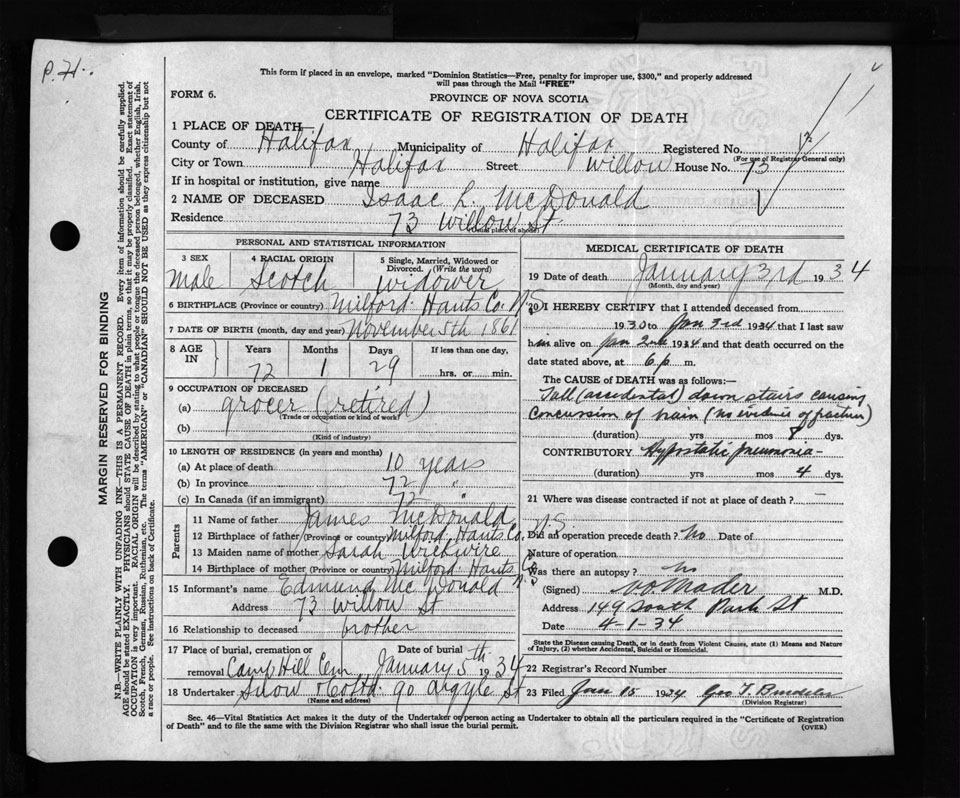 P. 71.
This form if placed in an envelope, marked "Dominion Statistics—Free, penalty for improper use, $300," and properly addressed
will pass through the Mail "FREE"
FORM 6.
PROVINCE OF NOVA SCOTIA
CERTIFICATE OF REGISTRATION OF DEATH
1 PLACE OF DEATH
County of Halifax Municipality of Halifax Registered No.
(For use of Registrar General only)
City or Town Halifax Street Willow House No. 73
If in hospital or institution, give name
2 NAME OF DECEASED Isaac L. McDonald
Residence 73 Willow St
(Usual place of abode)
PERSONAL AND STATISTICAL INFORMATION
3 SEX 4 RACIAL ORIGIN 5 Single, Married, Widowed or Divorced. (Write the word)
male Scotch widower
6 BIRTHPLACE (Province or country) Milford Hants Co. N.S.
7 DATE OF BIRTH (month, day and year) November 5th 1861
8 AGE IN Years Months Days If less than one day,
72 1 29 hrs. or min.
9 OCCUPATION OF DECEASED
(a) grocer (retired)
(Trade or occupation or kind of work)
(b)
(Kind of industry)
10 LENGTH OF RESIDENCE (in years and months)
(a) At place of death 10 years
(b) In province 72 "
(c) In Canada (if an immigrant) 72 "
Parents
11 Name of father James McDonald
12 Birthplace of father (Province or country) Milford Hants Co. N.S.
13 Maiden name of mother Sarah
14 Birthplace of mother (Province or country) Milford Hants Co. N.S.
15 Informant's name Edmund McDonald
Address 73 Willow St
16 Relationship to deceased brother
17 Place of burial, cremation or removal Camp Hill Cem Date of burial January 5th 1934
18 Undertaker Snow & Co Ltd. 90 Argyle St
(Name and address)
MEDICAL CERTIFICATE OF DEATH
19 Date of death January 3rd 1934
(Month, day and year)
20 I HEREBY CERTIFY that I attended deceased from
1930 to Jan 3rd 1934 that I last saw
him alive on Jan 2nd 1934 and that death occurred on the
date stated above, at 6 p. m.
The CAUSE of DEATH was as follows:—
Fall (accidental) down stairs causing
Concussion of brain (no evidence of fracture)
(duration) yrs mos dys.
CONTRIBUTORY Hypostatic pneumonia
(duration) yrs mos 4 dys.
21 Where was disease contracted if not at place of death? —
Did an operation precede death? No Date of
Nature of operation
Was there an autopsy? No
(Signed) V.O. Mader M.D.
Address 149 South Park St
Date 4-1-34
State the Disease causing Death, or in death from Violent Causes, state (1) Means and Nature
of Injury, (2) whether Accidental, Suicidal or Homicidal.
22 Registrar's Record Number
23 Filed Jan 15 1934 Geo T.
(Division Registrar)
Sec. 46—Vital Statistics Act makes it the duty of the Undertaker or person acting as Undertaker to obtain all the particulars required in the "Certificate of Registration
of Death" and to file the same with the Division Registrar who shall issue the burial permit. (OVER)
MARGIN RESERVED FOR BINDING
N.B.—WRITE PLAINLY WITH UNFADING INK—THIS IS A PERMANENT RECORD. Every item of information should be carefully supplied.
AGE should be stated EXACTLY. PHYSICIANS should STATE CAUSE OF DEATH in plain terms, so that it may be properly classified. Exact statement of
OCCUPATION is very important. RACIAL ORIGIN will be described by stating to what people or tongue the deceased person belonged, whether English, Irish,
Scotch, French, German, Russian, Ruthenian, etc. The terms "AMERICAN" or "CANADIAN" SHOULD NOT BE USED as they express citizenship but not
a race or people. See instructions on back of Certificate.